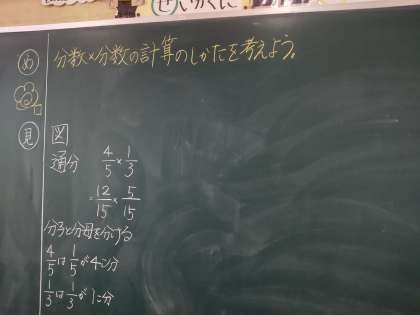 せいかくに
め 分数×分数の計算のしかたを考えよう。
見 図
通分 4/5×1/3
=12/15×5/15
分子と分母を分ける
4/5は1/5が4こ分
1/3は1/3が1こ分